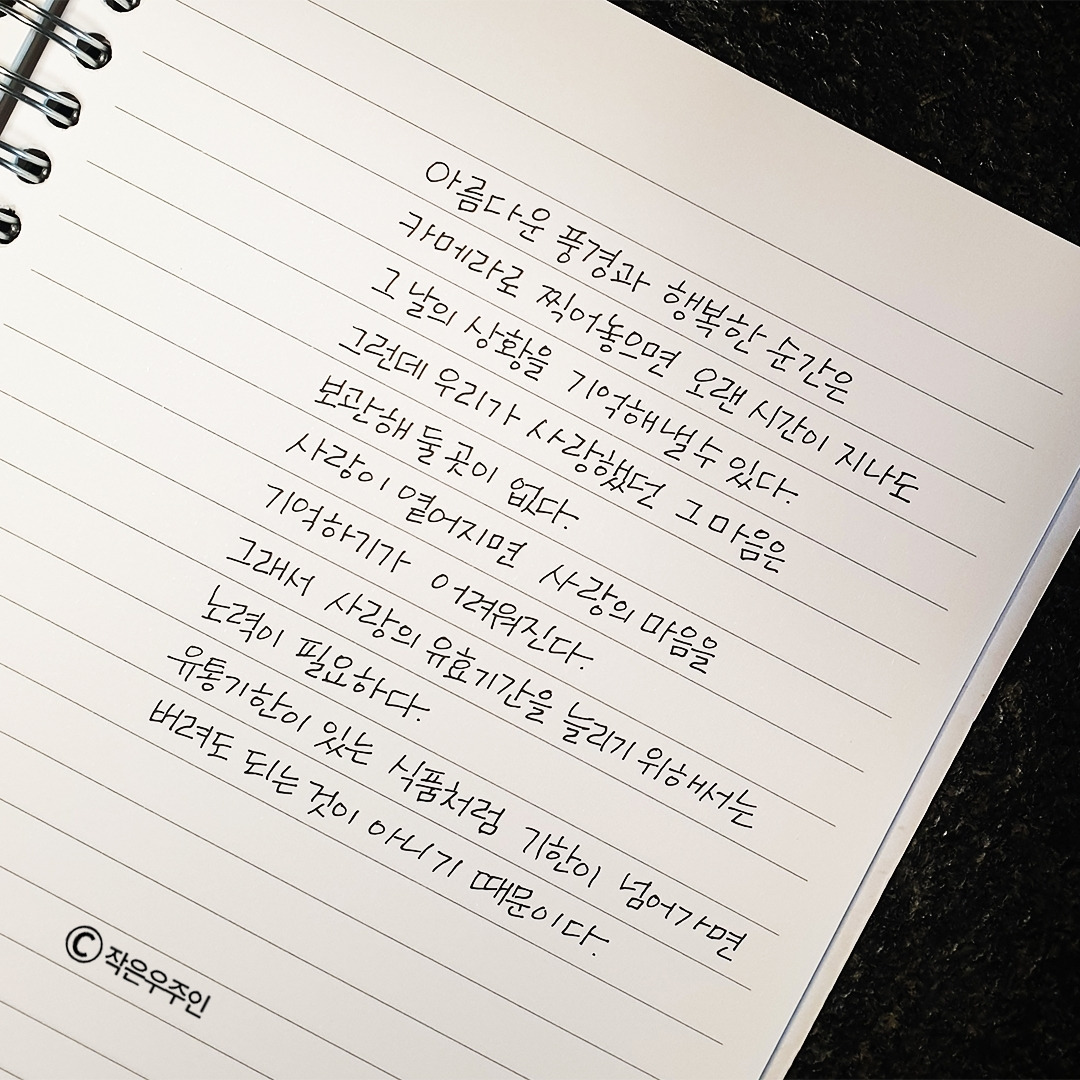 아름다운 풍경과 행복한 순간은
카메라로 찍어놓으면 오랜 시간이 지나도
그 날의 상황을 기억해낼 수 있다.
그런데 우리가 사랑했던 그 마음은
보관해 둘 곳이 없다.
사랑이 옅어지면 사랑의 마음을
기억하기가 어려워진다.
그래서 사랑의 유효기간을 늘리기 위해서는
노력이 필요하다.
유통기한이 있는 식품처럼 기한이 넘어가면
버려도 되는 것이 아니기 때문이다.
ⓒ작은우주인